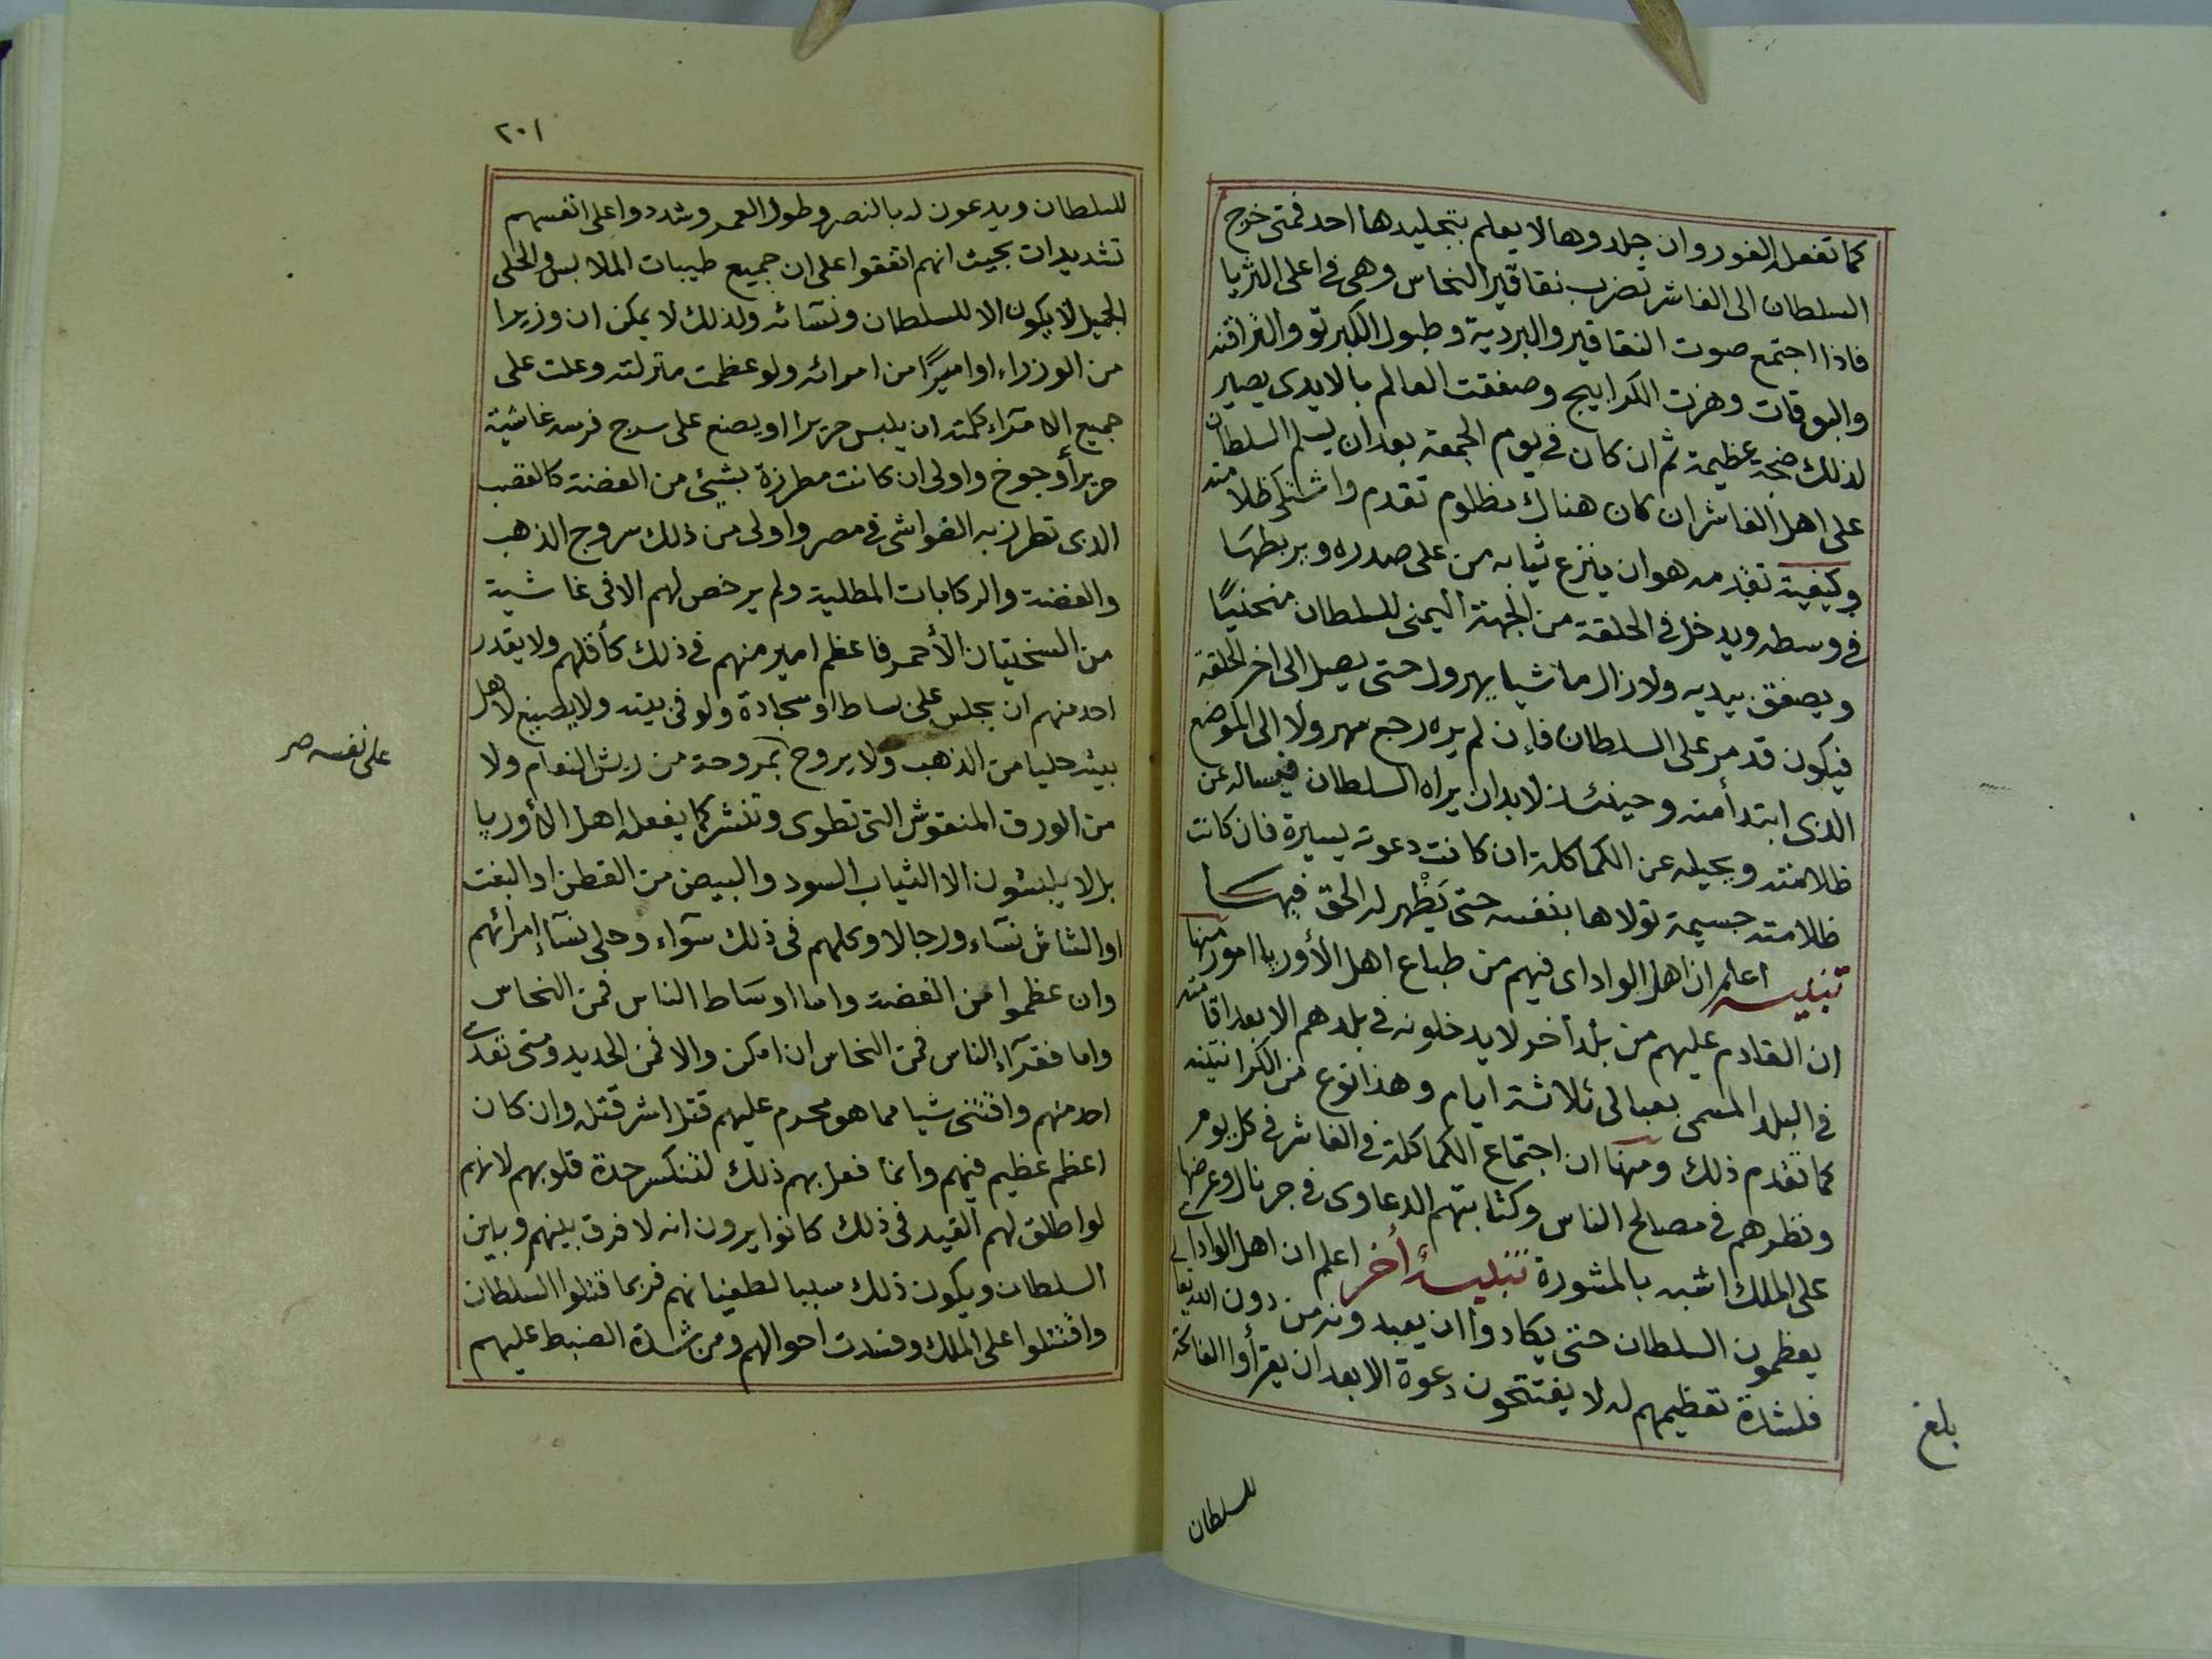 كما تفعل الفور وان جلدوها لا يعلم بتجليدها احد فمتى خرج
السلطان الى الفاشر تضرب نقاقير النحاس وهى فى اعلى الثريا
فاذا اجتمع صوت النقاقير والبردية وطبول الكبرتو والترافنه
والبوقات وهزت الكرابيج وصفقت العالم بالايدى يصير
لذلك ضجة عظيمة ثم ان كان فى يوم الجمعة بعد ان يسلم السلطان
على اهل الفاشر ان كان هناك مظلوم تقدم واشتكى ظلامته
وكيفية تقدمه هو ان ينزع ثيابه من على صدره ويربطها
فى وسطه ويدخل فى الحلقة من الجهة اليمنى للسلطان منحنيًا
ويصفق بيديه ولازال ماشيا يهرول حتى يصل الى اخر الحلقة
فيكون قد مر على السلطان فإن لم يره رجع مهرولا الى الموضع
الذى ابتدأ منه وحينئذ لابد ان يراه السلطان فيساله عن
ظلامته ويحيله عن الكماكلة ان كانت دعوته يسيرة فان كانت
ظلامته جسيمة تولاها بنفسه حتى يَظْهر له الحق فيها
تنبيه اعلم ان اهل الواداى فيهم من طباع اهل الأوربا امور منها
ان القادم عليهم من بلد أخر لا يدخلونه فى بلدهم الا بعد اقامته
فى البلد المسمى بعبالى ثلاثة ايام وهذا نوع من الكرانتينه
كما تقدم ذلك ومنها ان اجتماع الكماكلة فى الفاشر فى كل يوم
ونظرهم فى مصالح الناس وكتابتهم الدعاوى فى جرنال وعرضها
على الملك اشبه بالمشورة تنبيه أخر اعلم ان اهل الواداى
يعظمون السلطان حتى يكادوا ان يعبدونه من دون الله تعا
فلشدة تعظيمهم له لا يفتتحون دعوة الا بعد ان يقرأوا الفاتحة
بلغ
للسلطان
٢٠١
للسلطان ويدعون له بالنصر وطول العمر وشددوا على انفسهم
تشديدات بحيث انهم اتفقوا على ان جميع طيبات الملابس والحلى
الجميل لا يكون الا للسلطان ونسائه ولذلك لا يمكن ان وزيرا
من الوزراء او اميرًا من امرائه ولو عظمت منزلته وعلت على
جميع الامرآء كلمته ان يلبس حريرا او يضع على سرج فرسه غاشية
حريرأ وجوخ واولى ان كانت مطرزة بشيئ من الفضة كالقصب
الذى تطرز به الغواشى فى مصر واولى من ذلك سروج الذهب
والفضة والركابات المطلية ولم يرخص لهم الا فى غاشية
من السختيان الأحمر فاعظم امير منهم فى ذلك كأقلهم ولا يقدر
احد منهم ان يجلس على بساط او سجادة ولو فى بيته ولا يصيغ لاهل
بيته حليا من الذهب ولا يروح بمروحة من ريش النعام ولا
على نفسه صر
من الورق المنقوش التى تطوى وتنشر كما يفعله اهل الأوربا
بل لا يلبسون الا الثياب السود والبيض من القطن او البفت
او الشاش نسآء ورجالا وكلهم فى ذلك سوآء وحلى نسآء امرائهم
وان عظموا من الفضة واما اوساط الناس فمن النحاس
واما فقرآء الناس فمن النحاس ان امكن والا فمن الحديد ومتى تعدى
احد منهم واقتنى شيا مما هو محرم عليهم قتل اشر قتله وان كان
اعظم عظيم فيهم وانما فعل بهم ذلك لتنكسر حدة قلوبهم لانهم
لو اطلق لهم القيد فى ذلك كانوا يرون انه لا فرق بينهم وبين
السلطان ويكون ذلك سببا لطغيانهم فربما قتلوا السلطان
واقتتلوا على الملك وفسدت احوالهم ومن شدة الضبط عليهم